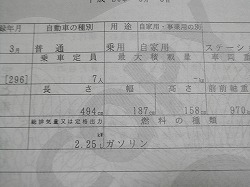 録年月 自動車の種別 用途 自家用・事業用の別
3月 普通 乗用 自家用 ステーシ
乗車定員 最大積載量 車両重
[296] 7人 -kg
長さ 幅 高さ 前前軸重
494cm 187cm 158cm 970
総排気量又は定格出力 燃料の種類
2.25 ガソリン